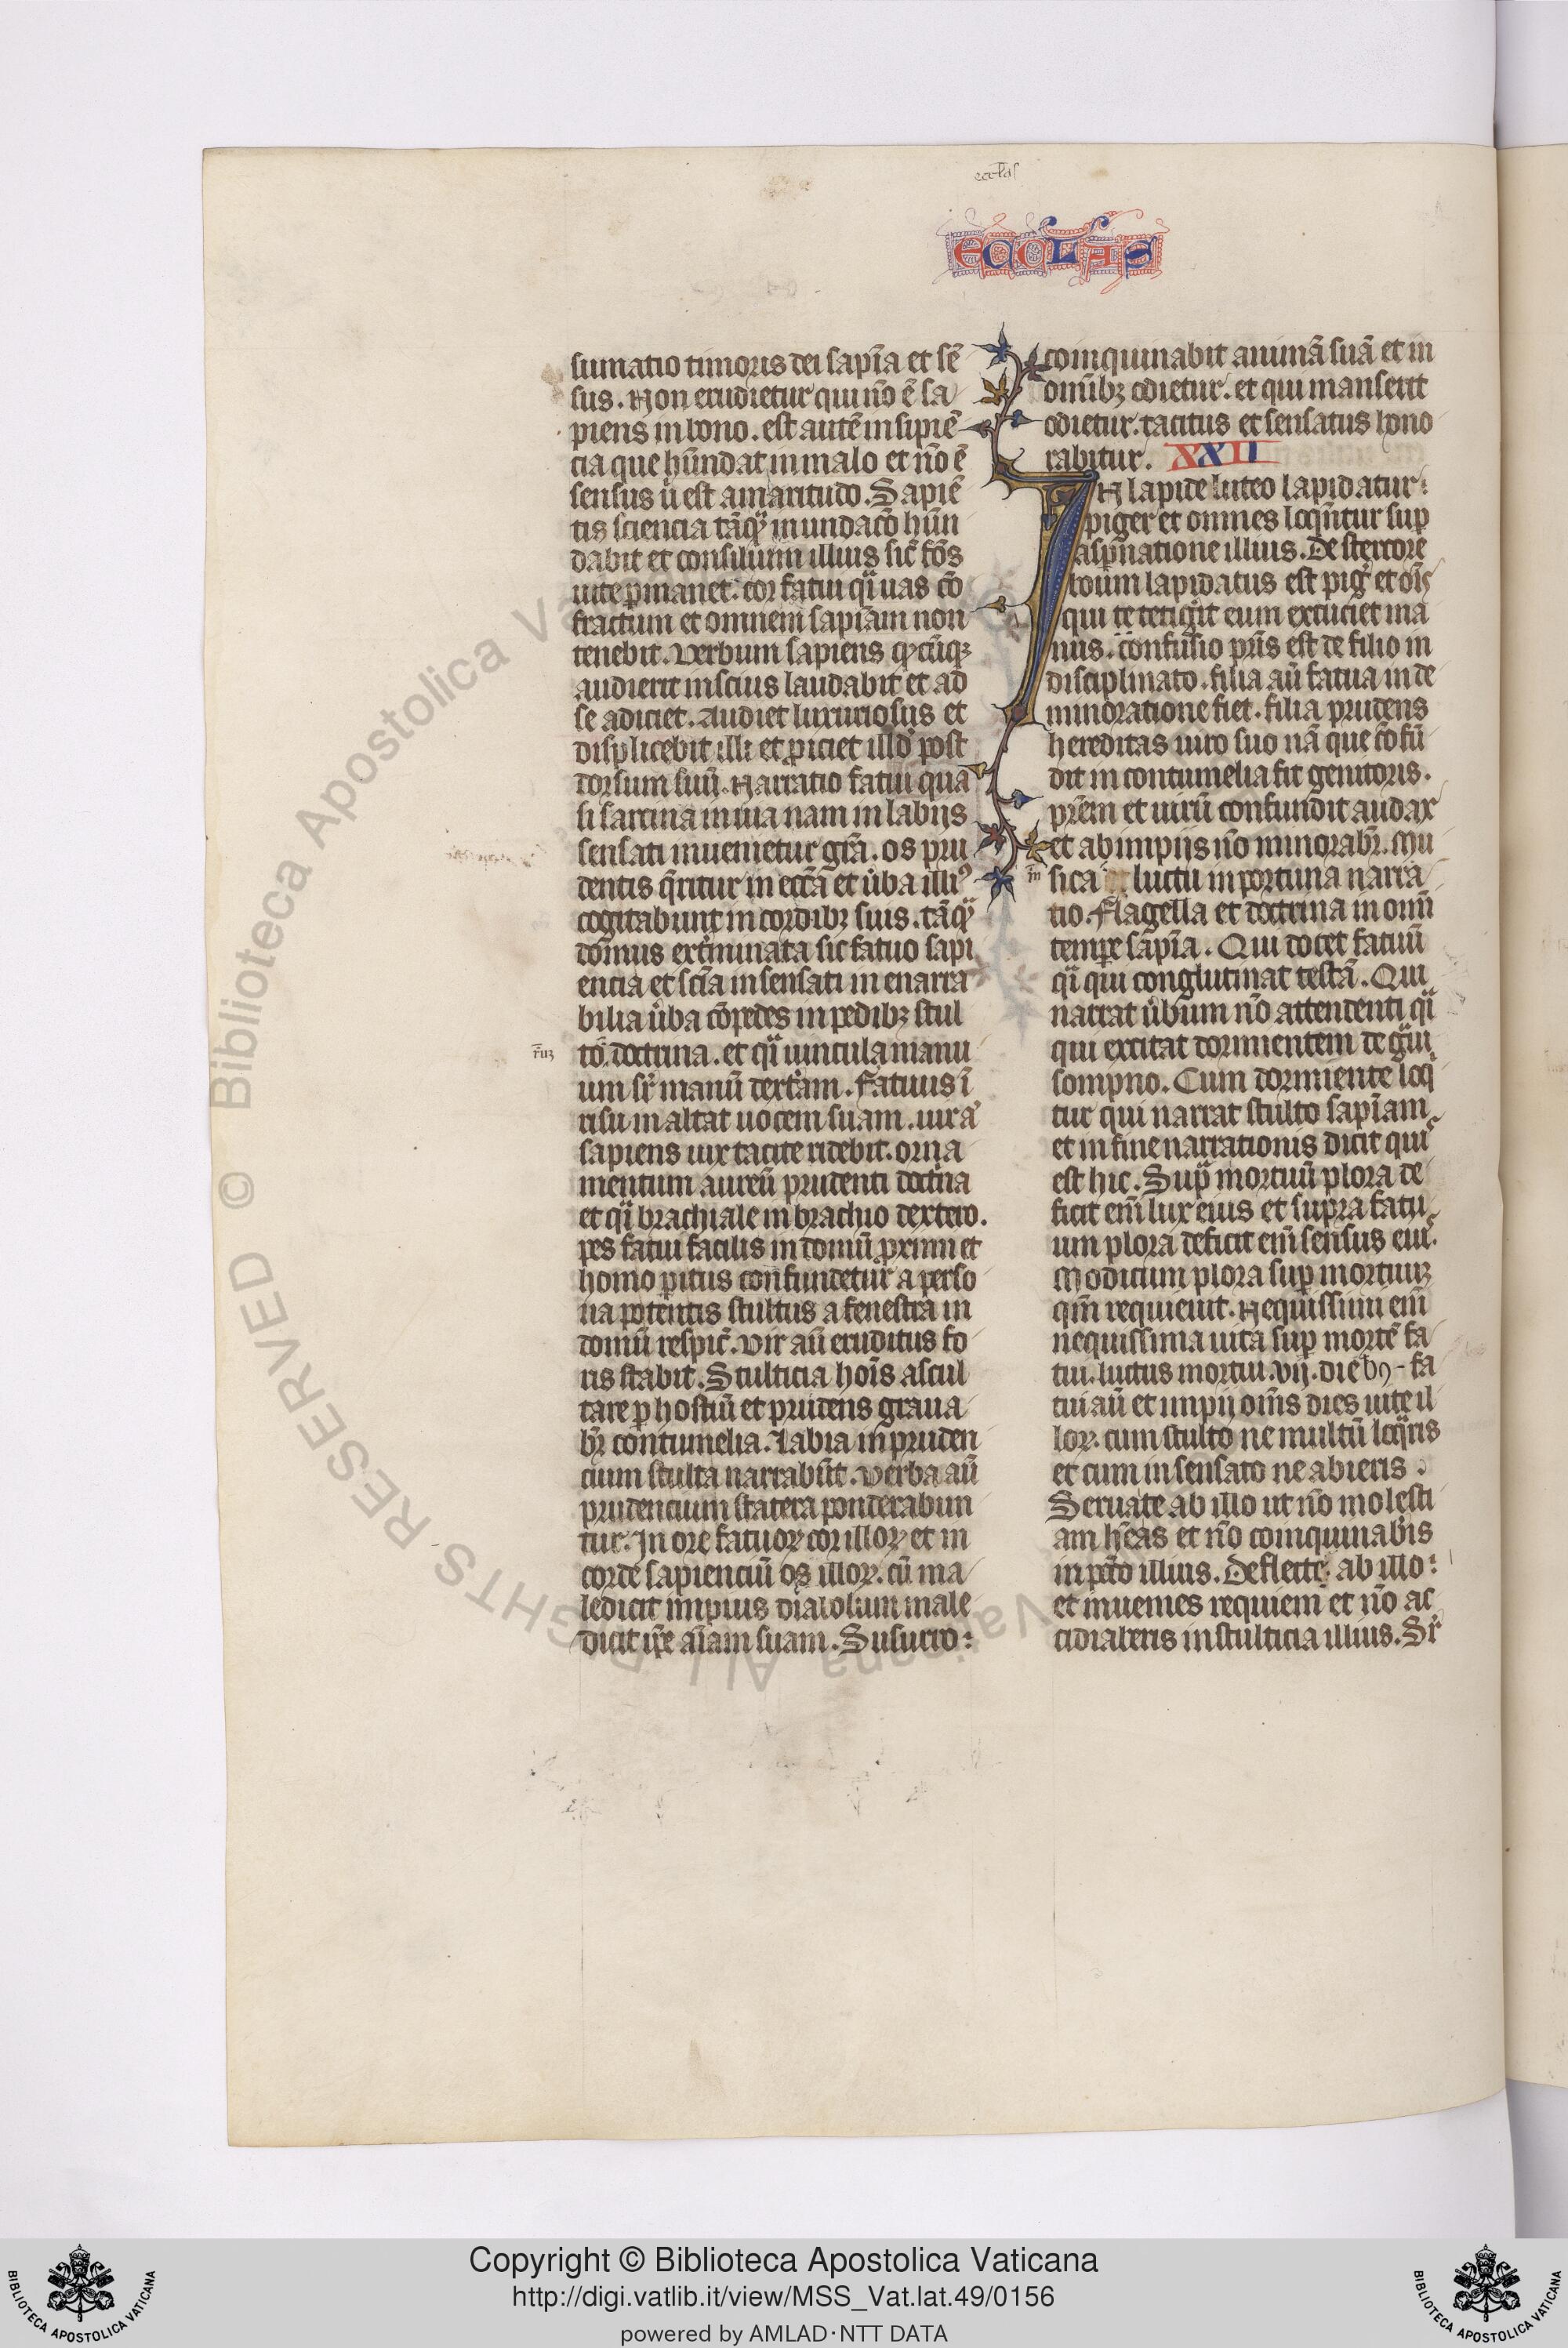 eccl'as
ECCLAS
sumatio timoris dei sapīa et sē
sus. Non erudietur qui nō ē sa
piens in bono. est autē insipiē
cia que hūndat in malo et nō ē
sensus ū est amaritudo. Sapiē
tis sciencia tāq inundacō hūn
dabit et consilium illius sic̄ fōs
uite ꝑmanet. cor fatui qi uas cō
fractum et omnem sapīam non
tenebit. Verbum sapiens qꝫcūqꝫ
audierit inscius laudabit et ad
se adiciet. Audiet luxuriosus et
displicebit illi et ꝓiciet illd post
dorsum suū. Narratio fatui qua
si sarcina in uia nam in labijs
sensati inuenietur grā. os pru
dentis q̄ritur in eccā et ūba illiꝰ
cogitabunt in cordibꝫ suis. tāq
domus extminata sic fatuo sapi
encia et scīa insensati inenarra
bilia ūba cōpedes in pedibꝫ stul
r̄uꝫ
tō doctrina. et qi uincula manu
um sr̄ manū dextam. Fatuus ī
risu inaltat uocem suam. uir a
sapiens uix tacite ridebit. orna
mentum aureū prudenti doctina
et qi brachiale in brachio dextero.
pes fatui facilis in domū ꝓximi et
homo ꝑitus confundetur a perso
na potentis stultus a fenestra in
domū respic̄. Vir aū eruditus fo
ris stabit. Stulticia hoīs ascul
tare ꝑ hostiū et prudens graua
br̄ contumelia. Labia inpruden
cium stulta narrabūt. Verba aū
prudencium statera ponderabun
tur. In ore fatuoꝝ cor illoꝝ et in
corde sapienciū os illoꝝ. cū ma
ledicit impius diabolum male
dicit ip̄e aīam suam. Susurro:
coinquinabit animā suā et in
omībꝫ odietur. et qui manserit
odietur. tacitus et sensatus hono
rabitur. XXII
IN lapide luteo lapidatur
piger et omnes loqūntur suꝑ
aspnatione illius. De stercore
boum lapidatus est pig et oīs
qui te tetigit eum excuciet ma
nus. confusio pris est de filio in
disciplinato. filia aū fatua in de
minoratione fiet. filia prudens
hereditas uiro suo nā que cōfū
dit in contumelia fit genitoris.
prēm et uirū confundit audax
et ab impiis nō minorabr̄. Mu
īn
sica luctu inportuna narra
tio. Flagella et doctrina in omī
tempre sāpīa. Qui docet fatuū
qi qui conglutinat testā. Qui
narrat ūbum nō attendenti qi
qui excitat dormientem de gui
sompno. Cum dormiente loq
tur qui narrat stulto sapīam
et in fine narrationis dicit qui
est hic. Sup mortuū plora de
ficit em̄ lux eius et supra fatu
um plora deficit em̄ sensus eiu
Modicum plora suꝑ mortuuꝫ
qm̄ requieuit. Nequissimi em̄
nequissima uita suꝑ mortē fa
tui. luctus mortui. vij. diebꝰ - fa
tui aū et impij om̄s dies uite il
loꝝ. cum stulto ne multū loqris
et cum insensato ne abieris.
Seruate ab illo ut nō molesti
am hēas et nō coinquinabis
in pccō illius. Deflecte ab illo:
et inuenies requiem et nō ac
cidiaberis in stulticia illius. Sr̄
© Biblioteca Apostolica Vaticana ALL RIGHTS RESERVED
BIBLIOTECA APOSTOLICA VATICANA
Copyright © Biblioteca Apostolica Vaticana
http://digi.vatlib.it/view/MSS_Vat.lat.49/0156
powered by AMLAD·NTT DATA
BIBLIOTECA APOSTOLICA VATICANA